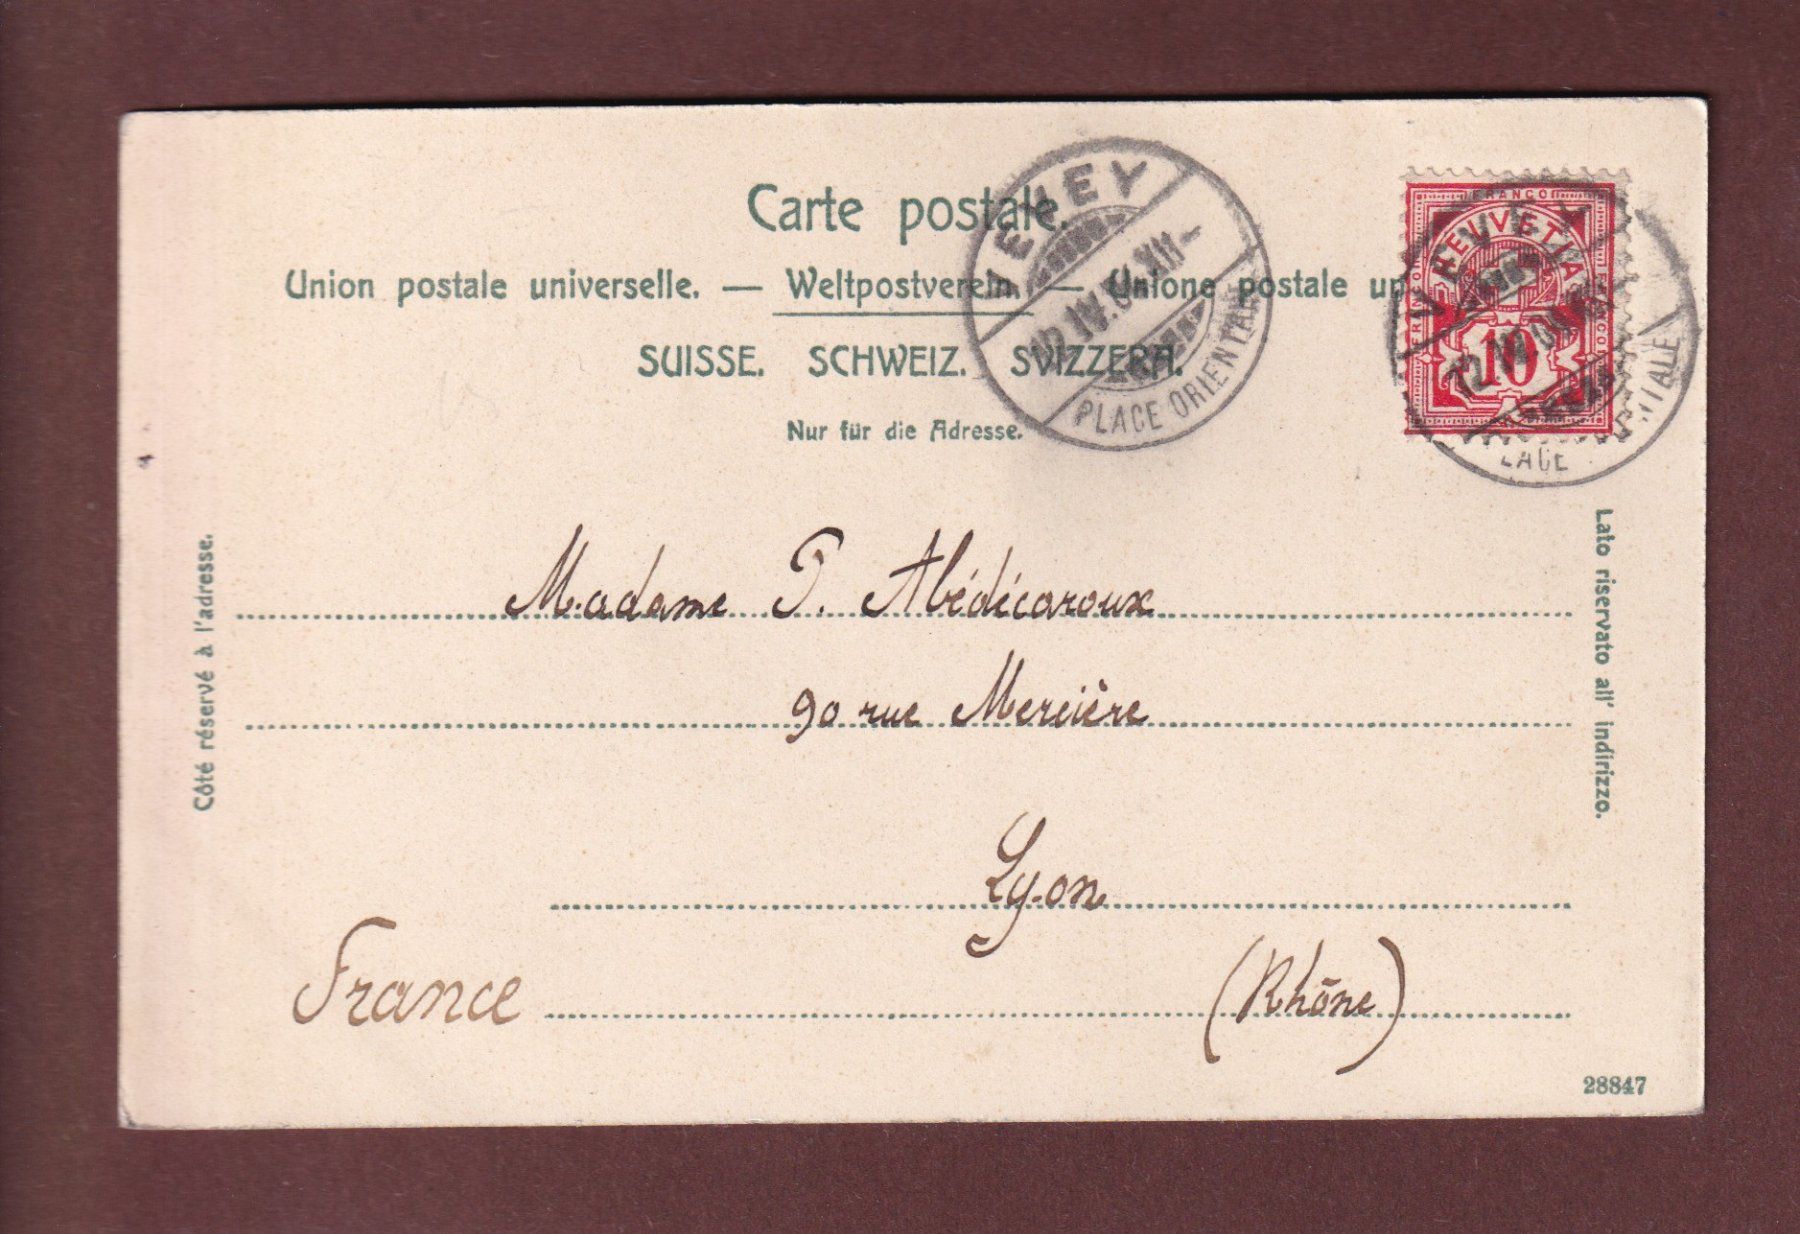 Carte postale.
Union postale universelle. — Weltpostverein. — Unione postale
SUISSE. SCHWEIZ. SVIZZERA.
Nur für die Adresse.
VEVEY
PLACE ORIENTALE
FRANCO
HELVETIA
10
VEVEY
Côté réservé à l'adresse.
Lato riservato all' indirizzo.
Madame P. Abédécaroux
90 rue Mercière
Lyon
France (Rhône)
28847